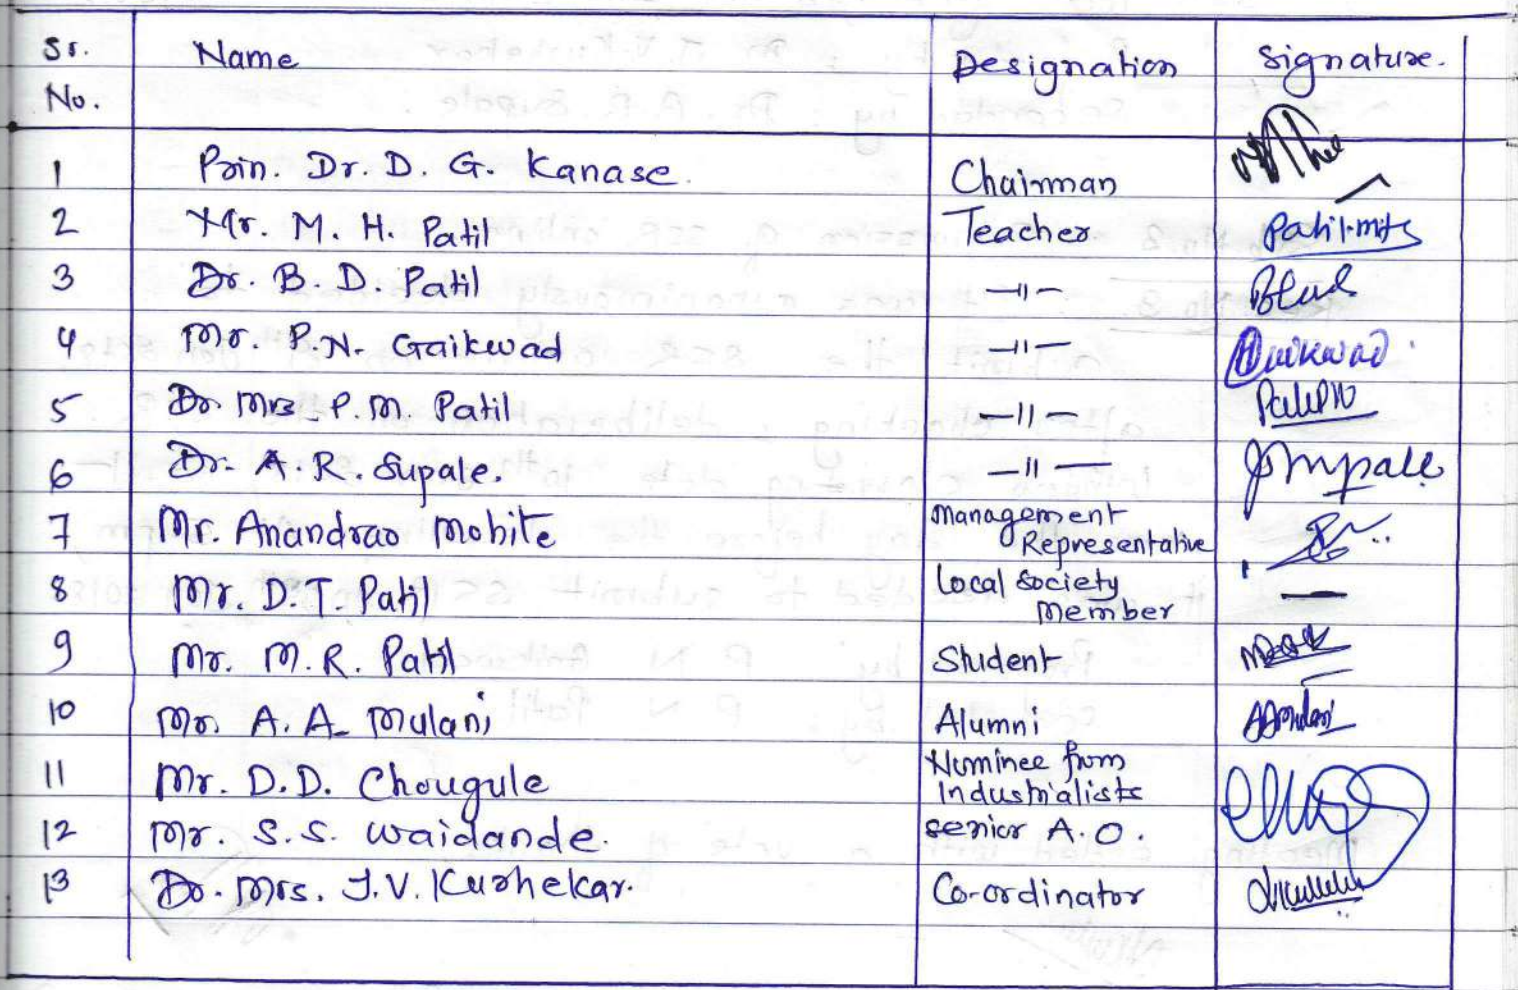 Sr. No. Name Designation Signature.
1 Prin. Dr. D. G. Kanase. Chairman
2 Mr. M. H. Patil Teacher Patil.mH
3 Dr. B. D. Patil —11—
4 Mr. P.N. Gaikwad —11— Gaikwad
5 Dr. Mrs. P.M. Patil —11— PatilPM
6 Dr. A.R. Supale. —11— Supale
7 Mr. Anandrao Mohite Management Representative
8 Mr. D.T. Patil Local Society Member —
9 Mr. M.R. Patil Student
10 Mr. A.A. Mulani Alumni AAMulani
11 Mr. D.D. Chougule Nominee from Industrialists
12 Mr. S.S. Waidande. Senior A.O.
13 Dr. Mrs. J.V. Kurhekar. Co-ordinator